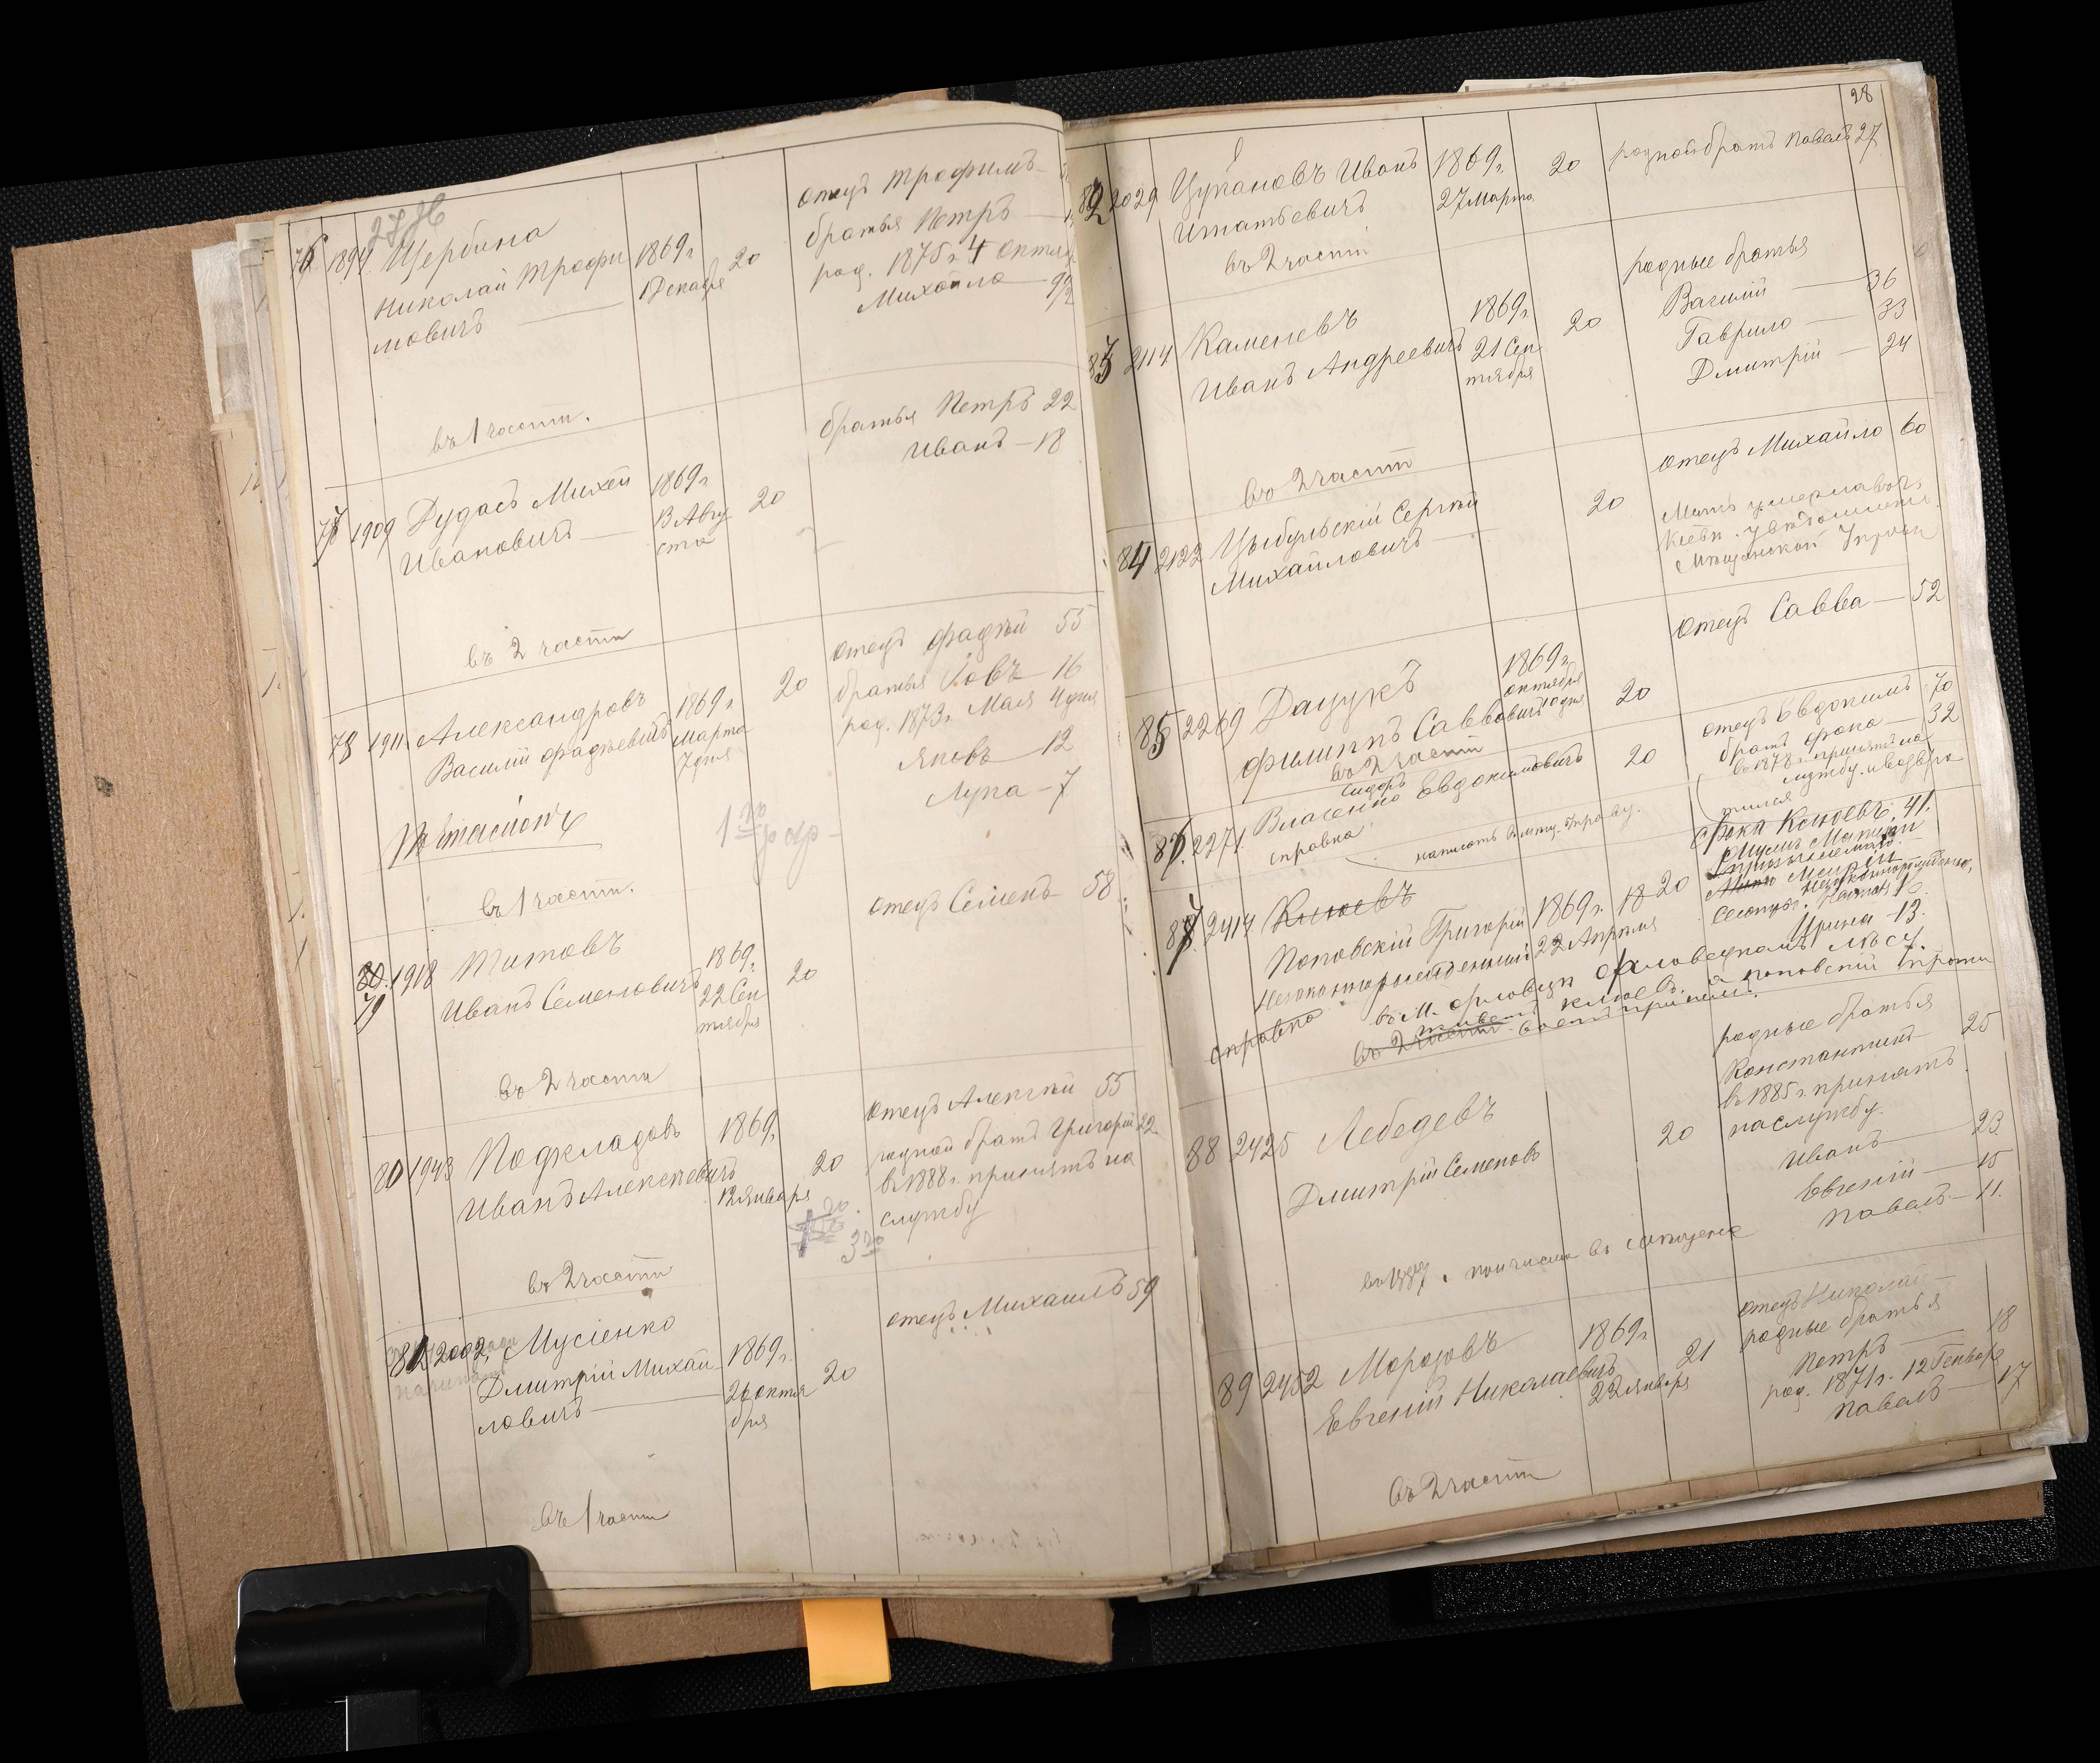 76 1894 Щербина
Николай Трофи
мовичъ
1869 г.
1 Декабря
20
отецъ Трофимъ
братья Петръ
род. 1875 г. 4 Октяб
Михайло
въ 1 части.
1909 Дудасъ Михей
Ивановичъ
1869 г.
13 Авгу
ста
20
братья Петръ 22
Иванъ — 18
въ 2 части
78 1911. Александровъ
Василій Фадѣевичъ
1869 г.
Марта
7 дня
20
отецъ Фадѣй 55
братья Іовъ — 16
род. 1873 г. Мая 4 дня
Яковъ — 12
Лука — 7
въ 1 части.
80. 79 1918 Титовъ
Иванъ Семеновичъ
1869 г.
22 Сен
тября
20
отецъ Семенъ — 58
въ 2 части
80 1943 Подкладовъ
Иванъ Алексѣевичъ
1869 г.
12 Января
20
отецъ Алексѣй 55
родной братъ Григорій 22
въ 1888 г. принятъ на
службу
въ 2 части
81 2002. Мусіенко
Дмитрій Михай
ловичъ
1869 г.
26 Октя
бря
20
отецъ Михаилъ 59
въ 1 части
28
82 2029 Цукановъ Иванъ
Игнатьевичъ
1869 г.
27 Марта
20
родной братъ Павелъ 27
въ 2 части
83 2114 Каменевъ
Иванъ Андреевичъ
1869 г.
21 Сен
тября
20
родные братья
Василій — 36
Гаврило — 33
Дмитрій — 24
въ 2 части
84 2122 Цыбульскій Сергѣй
Михайловичъ
20
отецъ Михайло 60
Мать умерла въ г.
Кіевѣ.
85 2269 Дацукъ
Филиппъ Саввовичъ
1869 г.
октября
10 дня
20
отецъ Савва — 52
въ 2 части
86. 2271. Власенко Сидоръ Евдокимовичъ
справка
20
отецъ Евдокимъ 70
братъ Фока — 32
въ 1878 г. принятъ на
службу и возвра
тился
87 2414 Клюевъ
Поповскій Григорій
Незаконнорожденный
1869 г.
22 Апрѣля
18 20
Фока Клюевъ. 41.
Ирина — 13.
справка
въ 2 части
88 2425 Лебедевъ
Дмитрій Семеновъ
20
родные братья
Константинъ 25
въ 1885 г. принятъ
на службу.
Иванъ — 23
Евгеній — 15
Павелъ — 11.
89 2452 Морозовъ
Евгеній Николаевичъ
1869 г.
22 Января
21
отецъ Николай —
родные братья
Петръ — 18
род. 1871 г. 12 Генваря
Павелъ — 17
въ 2 части